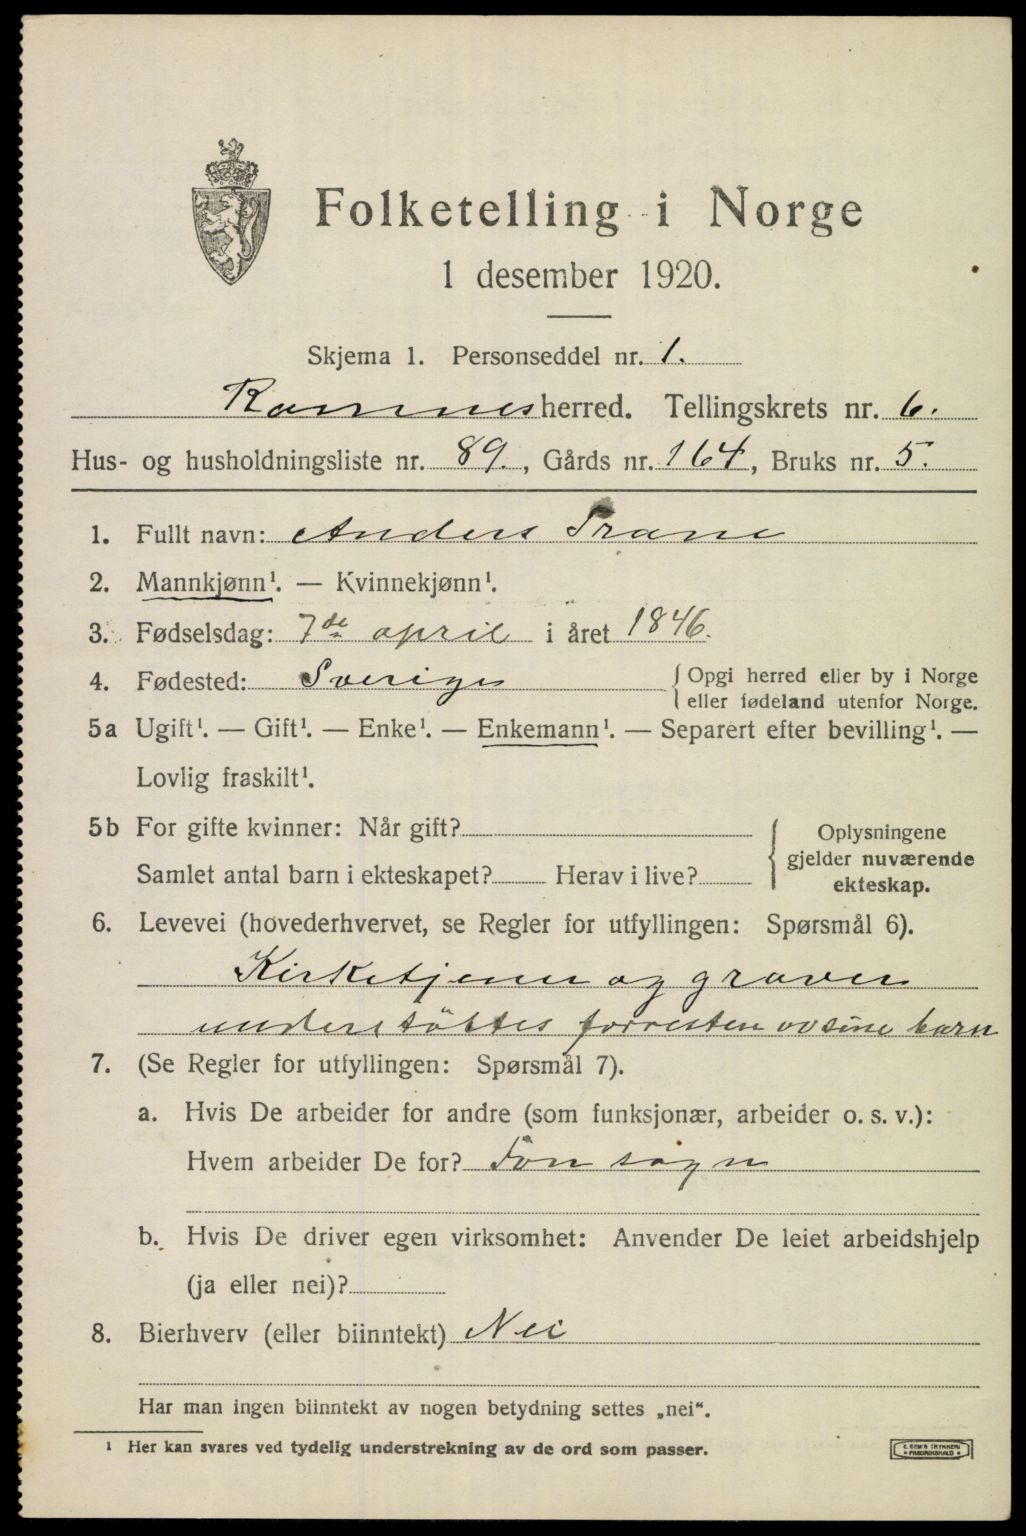 Folketelling i Norge
1 desember 1920.
Skjema 1. Personseddel nr. 1.
Ramnes herred. Tellingskrets nr. 6.
Hus- og husholdningsliste nr. 89., Gårds nr. 164, Bruks nr. 5.
1. Fullt navn: Anders Trane
2. Mannkjønn¹. — Kvinnekjønn¹.
3. Fødselsdag: 7de april i året 1846.
4. Fødested: Sverige { Opgi herred eller by i Norge
eller fødeland utenfor Norge.
5a Ugift¹. — Gift¹. — Enke¹. — Enkemann¹. — Separert efter bevilling¹. —
Lovlig fraskilt¹.
5b For gifte kvinner: Når gift?
Samlet antal barn i ekteskapet? Herav i live?
Oplysningene
gjelder nuværende
ekteskap.
6. Levevei (hovederhvervet, se Regler for utfyllingen: Spørsmål 6).
Kirketjener og graver
understöttes forresten av sine barn
7. (Se Regler for utfyllingen: Spørsmål 7).
a. Hvis De arbeider for andre (som funksjonær, arbeider o. s. v.):
Hvem arbeider De for? Fon sogn
b. Hvis De driver egen virksomhet: Anvender De leiet arbeidshjelp
(ja eller nei)?
8. Bierhverv (eller biinntekt) Nei
Har man ingen biinntekt av nogen betydning settes „nei".
¹ Her kan svares ved tydelig understrekning av de ord som passer.